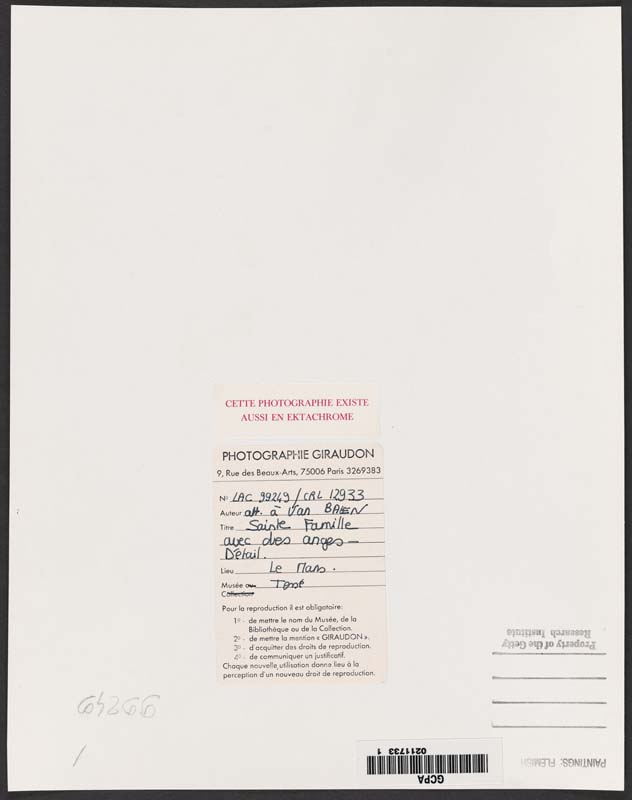 CETTE PHOTOGRAPHIE EXISTE
AUSSI EN EKTACHROME
PHOTOGRAPHIE GIRAUDON
9, Rue des Beaux-Arts, 75006 Paris 3269383
No LAC 99249 / CRL 12933
Auteur att. à Van BALEN
Titre Sainte Famille
avec des anges —
Détail.
Lieu Le Mans.
Musée ou Tessé
Collection
Pour la reproduction il est obligatoire:
1o - de mettre le nom du Musée, de la
Bibliothèque ou de la Collection.
2o - de mettre la mention « GIRAUDON ».
3o - d'acquitter des droits de reproduction.
4o - de communiquer un justificatif.
Chaque nouvelle utilisation donne lieu à la
perception d'un nouveau droit de reproduction.
Property of the Getty
Research Institute
GCPA
0211733 1
PAINTINGS: FLEMISH